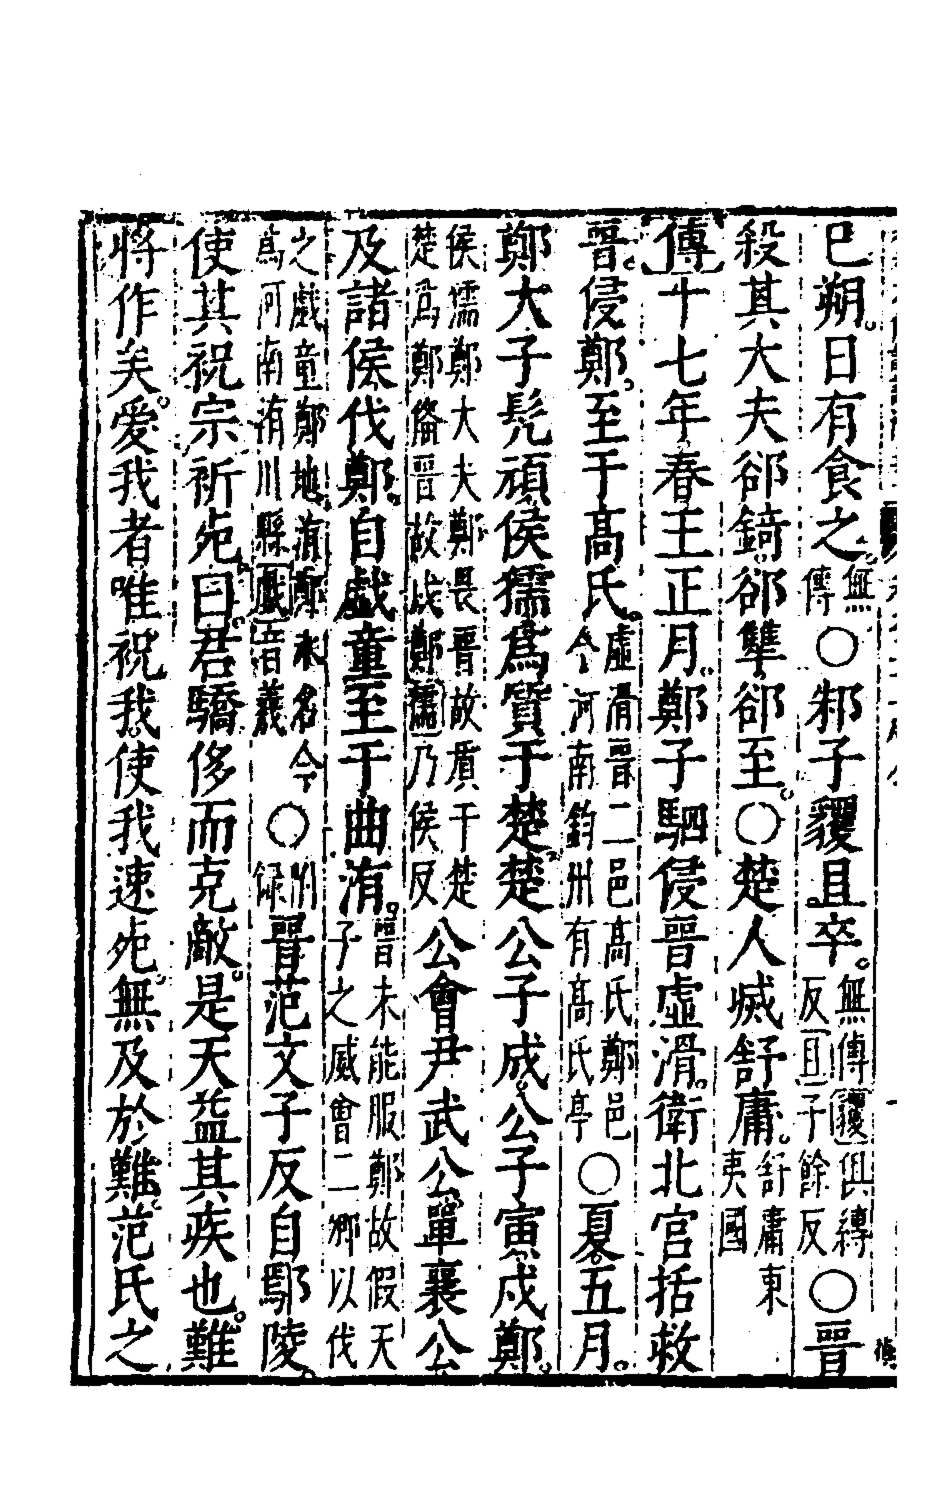 巳朔。日有食之。無傳○邾子貜且卒。無傳貜俱縛反且子餘反○晉
殺其大夫郤錡郤犨郤至。○楚人滅舒庸。舒庸東夷國
傳十七年春王正月。鄭子駟侵晉虛滑。衛北宮括救
晉。侵鄭。至于高氏。虛滑晉二邑高氏鄭邑今河南鈞州有高氏亭○夏五月。
鄭大子髡頑侯獳為質于楚。楚公子成。公子寅戍鄭。
侯獳鄭大夫鄭畏晉故質于楚楚為鄭備晉故戍鄭獳乃侯反公會尹武公單襄公
及諸侯伐鄭。自戲童至于曲洧。晉未能服鄭故假天子之威會二卿以伐
之戲童鄭地洧鄭水名今為河南洧川縣戲音羲○附錄晉范文子反自鄢陵。
使其祝宗祈死。曰。君驕侈而克敵。是天益其疾也。難
將作矣。愛我者唯祝我使我速死。無及於難。范氏之